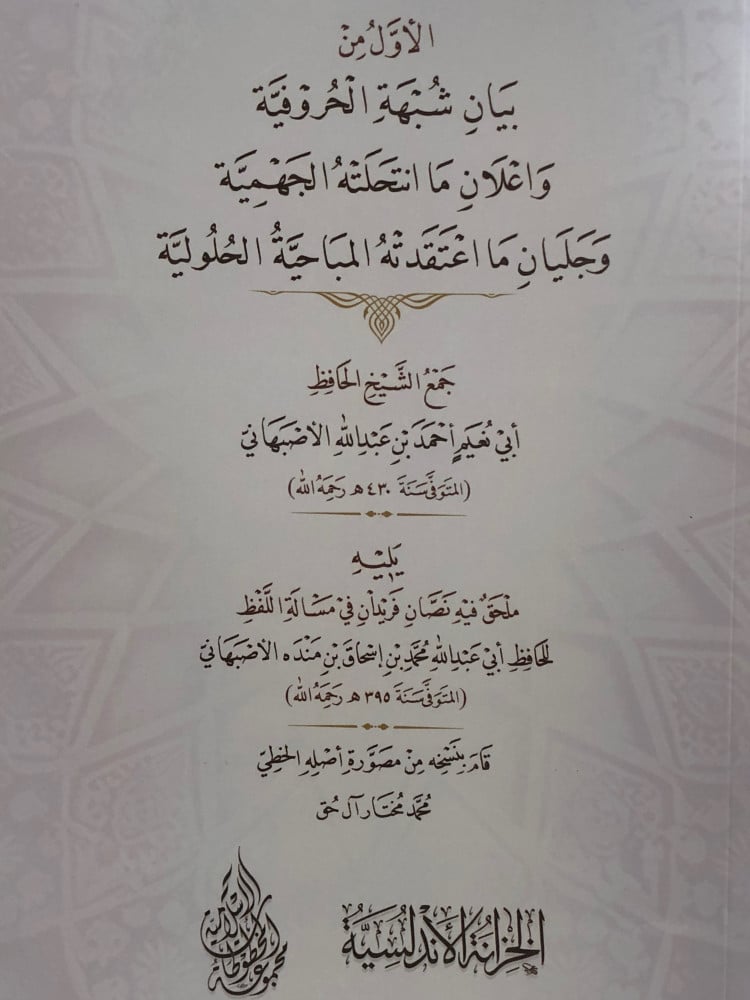 الأَوَّلُ مِنْ
بَيَانِ شُبْهَةِ الْحُرُوْفِيَّة
وَاعْلَانِ مَا انتحَلَتْهُ الجَهْمِيَّة
وَجَلَيَانِ مَا اعْتَقَدَتْهُ المبَاحيَّةُ الحُلُوليَّة
جَمْعُ الشَّيْخِ الحَافِظِ
أَبِيْ نُعَيمٍ أَحْمَدَ بْنِ عَبْدِ اللهِ الأَصْبَهَانيّ
(المتَوَفَّى سَنَةَ ٤٣٠ هـ رَحِمَهُ الله)
يَلِيْهِ
مُلْحَقٌ فيْهِ نَصَّانِ فَرِيْدَانِ فيْ مَسْأَلَةِ اللَّفْظِ
للحَافِظِ أَبيْ عَبْدِ اللهِ مُحَمَّدِ بْنِ إِسْحَاقَ بْنِ مَنْدَه الأَصْبَهَانيّ
(المتَوَفَّى سَنَةَ ٣٩٥ هـ رَحِمَهُ الله)
قَامَ بِنَسْخِه مِنْ مصَوَّرَةِ أَصْلِهِ الخطِّيّ
مُحَمَّد مُختَار آل حُق
الخزانة الأندلسية
مجموعة المخطوطات الإسلامية